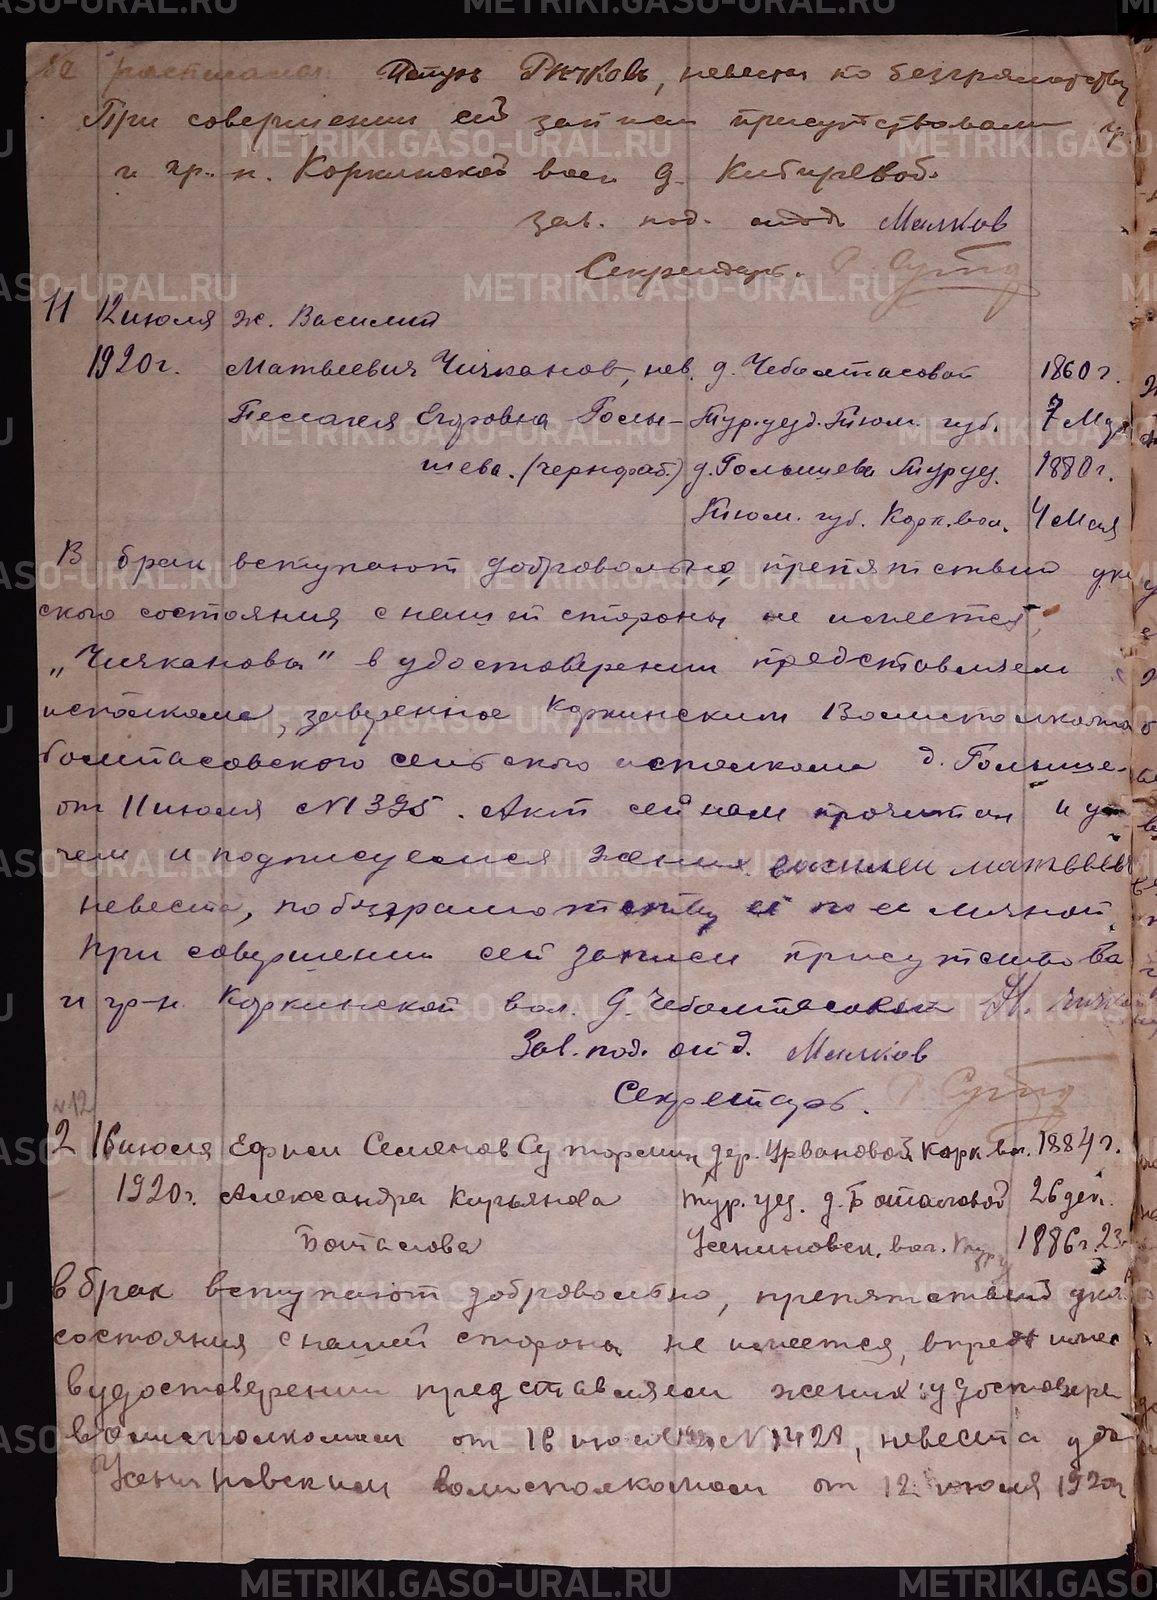 METRIKI.GASO-URAL.RU
расписался Рычковъ, невеста по безграмотству
При совершении сей записи присутствовали гр
и гр. н. Коркинской вол д. Кибирево
Зав. под. отд Малков
Секретарь.
11 12 июля ж. Василий
1920 г. Матвеевич Чичканов, нев. д. Чебалтасовой 1860 г.
Пелагея Егоровна Голы- Тур. уезд. Тюм. губ. 7 Мар
шева. (чернораб.) д. Голышева Тур уез. 1880 г.
Тюм. губ. Корк. вол. 4 Мая
В брак вступают добровольно, препятствий ука
ского состояния с нашей стороны не имеется,
„Чичкановы" в удостоверении представляем
исполкома, заверенное Коркинским Волисполкома
балтасовского сельского исполкома д. Голыше-
от 11 июля № 395. Акт сей нам прочитан и у
чем и подписуемся жених василеи матввев
невеста, по безграмотству ее по ее личной
При совершении сей записи присутствова
и гр-н Коркинской вол. д. Чебалтасовой
Зав. под. отд. Малков
Секретарь.
№12
12 16 июля Ефим Семенов Сутормин дер. Урвановой Корк. вол. 1884 г.
1920 г. Александра Кирьянова Тур. уез. д. Боталовой 26 дек.
Боталова Усениновск. вол. Тур у 1886 г. 23
в брак вступают добровольно, препятствий ука
состояния с нашей стороны не имеется, впредь имен
в удостоверении представляем жених: удостовере
волисполкомом от 16 июля 1920 № 1428, невеста удо
Усениновским волисполкомом от 12 июля 1920 г